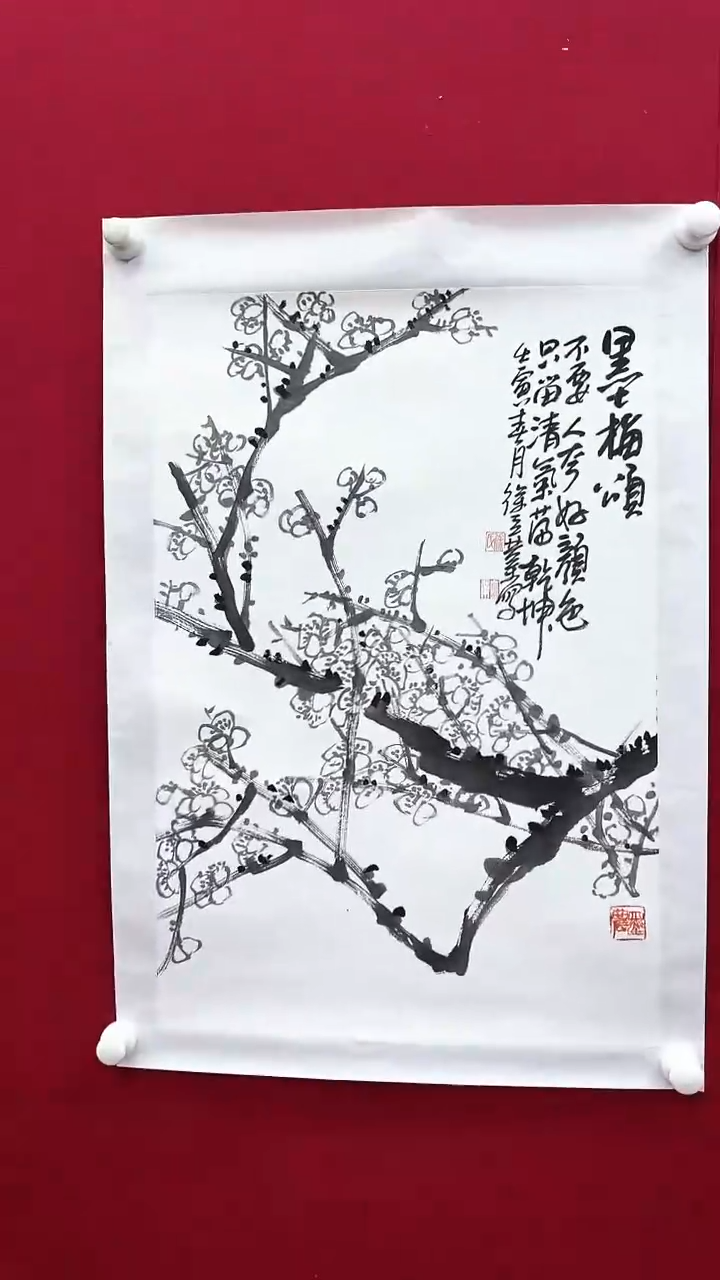 墨梅頌
不要人夸好顔色
只留清氣滿乾坤
壬寅春月徐立業寫